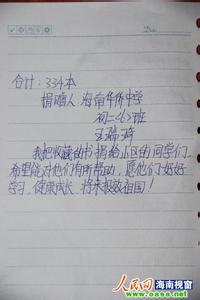 合计：334本
捐赠人：海南华侨中学
初二(2)班
我把收藏的书捐给山区的同学们，
希望能对他们有所帮助，愿他们好好
学习，健康成长，将来报效祖国！
人民网 海南视窗